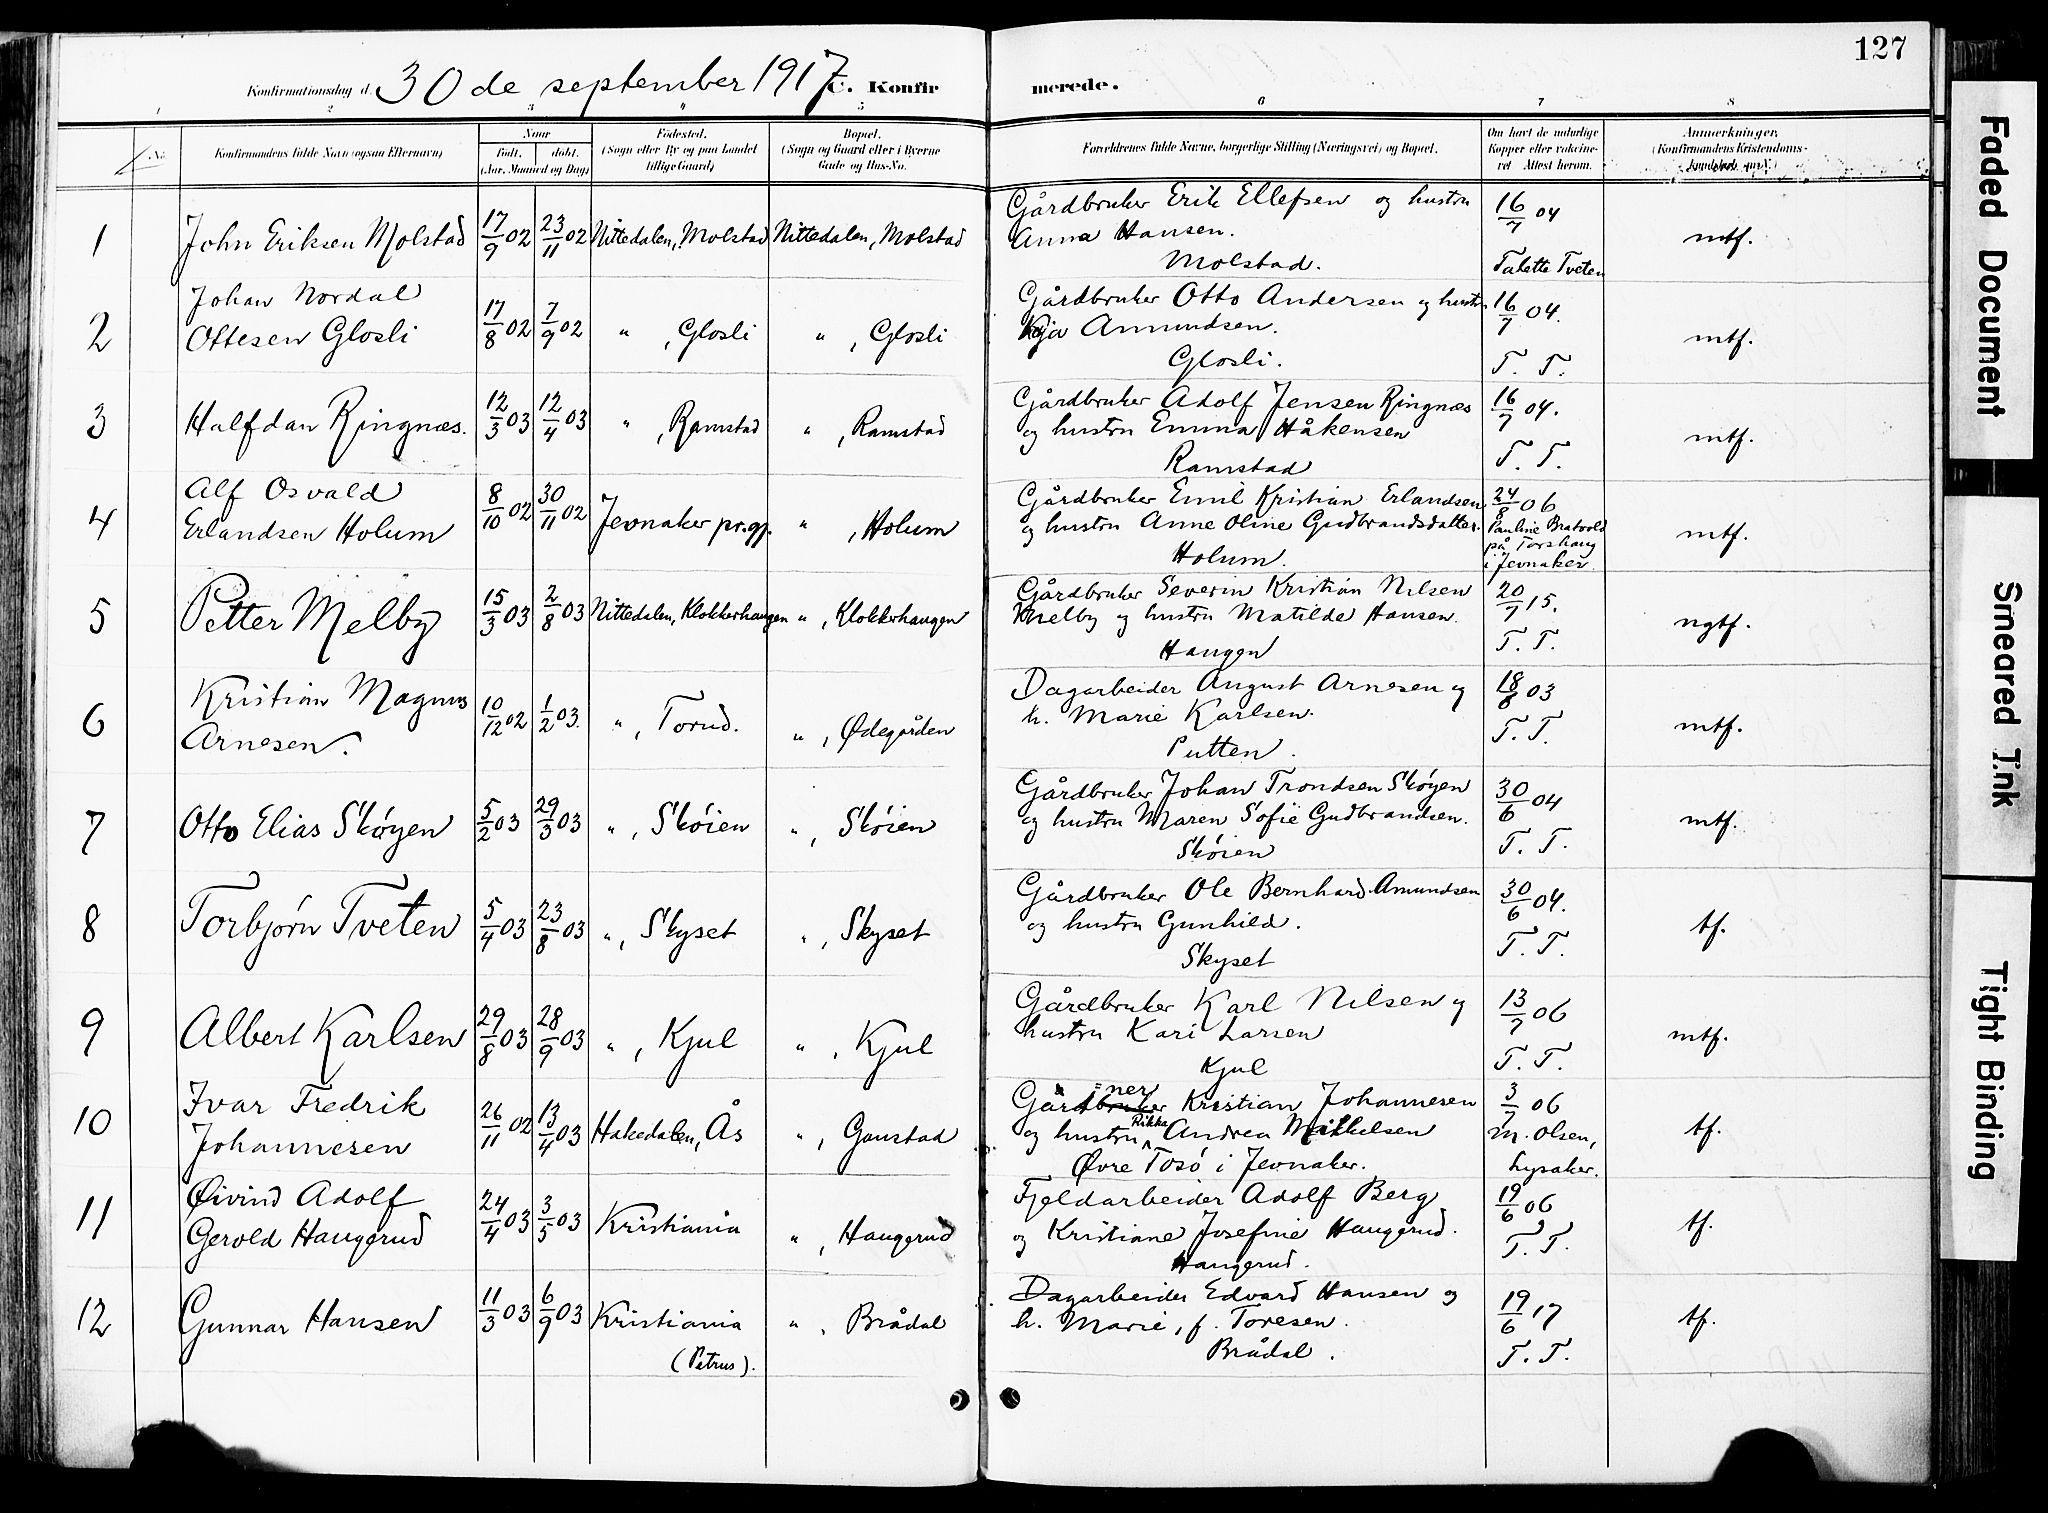 127
Konfirmationsdag d. 30 de september 1917 C. Konfirmerede.
1 2 3 4 5 6 7 8
No.
Konfirmandens fulde Navn (ogsaa Efternavn)
Naar
födt. döbt.
(Aar, Maaned og Dag)
Födested.
(Sogn eller By og paa Landet
tillige Gaard)
Bopæl.
(Sogn og Gaard eller i Byerne
Gade og Hus-No.
Forældrenes fulde Navne, borgerlige Stilling (Næringsvei) og Bopæl.
Om havt de naturlige
Kopper eller vaccine-
ret Attest herom.
Anmærkninger.
(Konfirmandens Kristendoms-
kundskab m. v.)
1 John Eriksen Molstad 17/9 02 23/11 02 Nittedalen, Molstad Nittedalen, Molstad
Gårdbruker Erik Ellefsen og hustru 16/7 04
Anna Hansen. mtf.
Molstad. Talette Tveten
2 Johan Nordal
Ottesen Glosli 17/8 02 7/9 02 " , Glosli " , Glosli
Gårdbruker Otto Andersen og hustru 16/7 04.
Kja Amundsen. mtf.
Glosli. T. T.
3 Halfdan Ringnæs. 12/3 03 12/4 03 " , Ramstad " , Ramstad
Gårdbruker Adolf Jensen Ringnæs 16/7 04.
og hustru Emma Håkensen mtf.
Ramstad T. T.
4 Alf Osvald
Erlandsen Holum 8/10 02 30/11 02 Jevnaker pr.gj. " , Holum
Gårdbruker Emil Kristian Erlandsen 24/8 06
og hustru Anne Oline Gudbrandsdatter. Pauline Bratvold
på Torshaug mtf.
Holum. i Jevnaker.
5 Petter Melby 15/3 03 2/8 03 Nittedalen, Klokkerhaugen " , Klokkerhaugen
Gårdbruker Severin Kristian Nilsen 20/7 15.
Melby og hustru Matilde Hansen. ngtf.
Haugen T. T.
6 Kristian Magnus
Arnesen. 10/12 02 1/2 03. " , Torud. " , Ødegården
Dagarbeider August Arnesen og 18/6 03
h. Marie Karlsen. mtf.
Putten. T. T.
7 Otto Elias Skøyen 5/2 03 29/3 03 " , Skøien " , Skøien
Gårdbruker Johan Trondsen Skøyen 30/6 04
og hustru Maren Sofie Gudbrandsen. mtf.
Skøien T. T.
8 Torbjørn Tveten 5/4 03 23/8 03 " , Skyset " , Skyset
Gårdbruker Ole Bernhard Amundsen 30/6 04.
og hustru Gunhild. tf.
Skyset T. T.
9 Albert Karlsen 29/8 03 28/9 03 " , Kjul " , Kjul
Gårdbruker Karl Nilsen og 13/7 06
hustru Kari Larsen mtf.
Kjul T. T.
10 Ivar Fredrik
Johannesen 26/11 02 13/4 03 Hakedalen, Ås " , Gaustad
=ner
Gårdbruker Kristian Johannesen 3/7 06
Rikka
og hustru Andrea Mikkelsen M. Olsen, tf.
Øvre Tosø i Jevnaker. Lysaker.
11 Øivind Adolf
Gerold Haugerud 24/4 03 3/5 03 Kristiania " , Haugerud
Fjeldarbeider Adolf Berg 19/6 06
og Kristiane Josefine Haugerud. tf.
Haugerud. T. T.
12 Gunnar Hansen 11/3 03 6/9 03 Kristiania " , Brådal
(Petrus).
Dagarbeider Edvard Hansen og 19/6 17
h. Marie, f. Toresen. tf.
Brådal. T. T.
Faded Document
Smeared Ink
Tight Binding